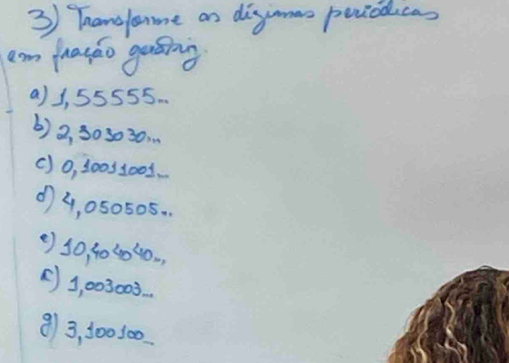 3) Transforme as dízimas periódicas
em fração geratriz.
a) 1,55555...
b) 2,303030...
c) 0,10011001...
d) 4,050505...
e) 10,404040...
f) 1,003003...
g) 3,100100...